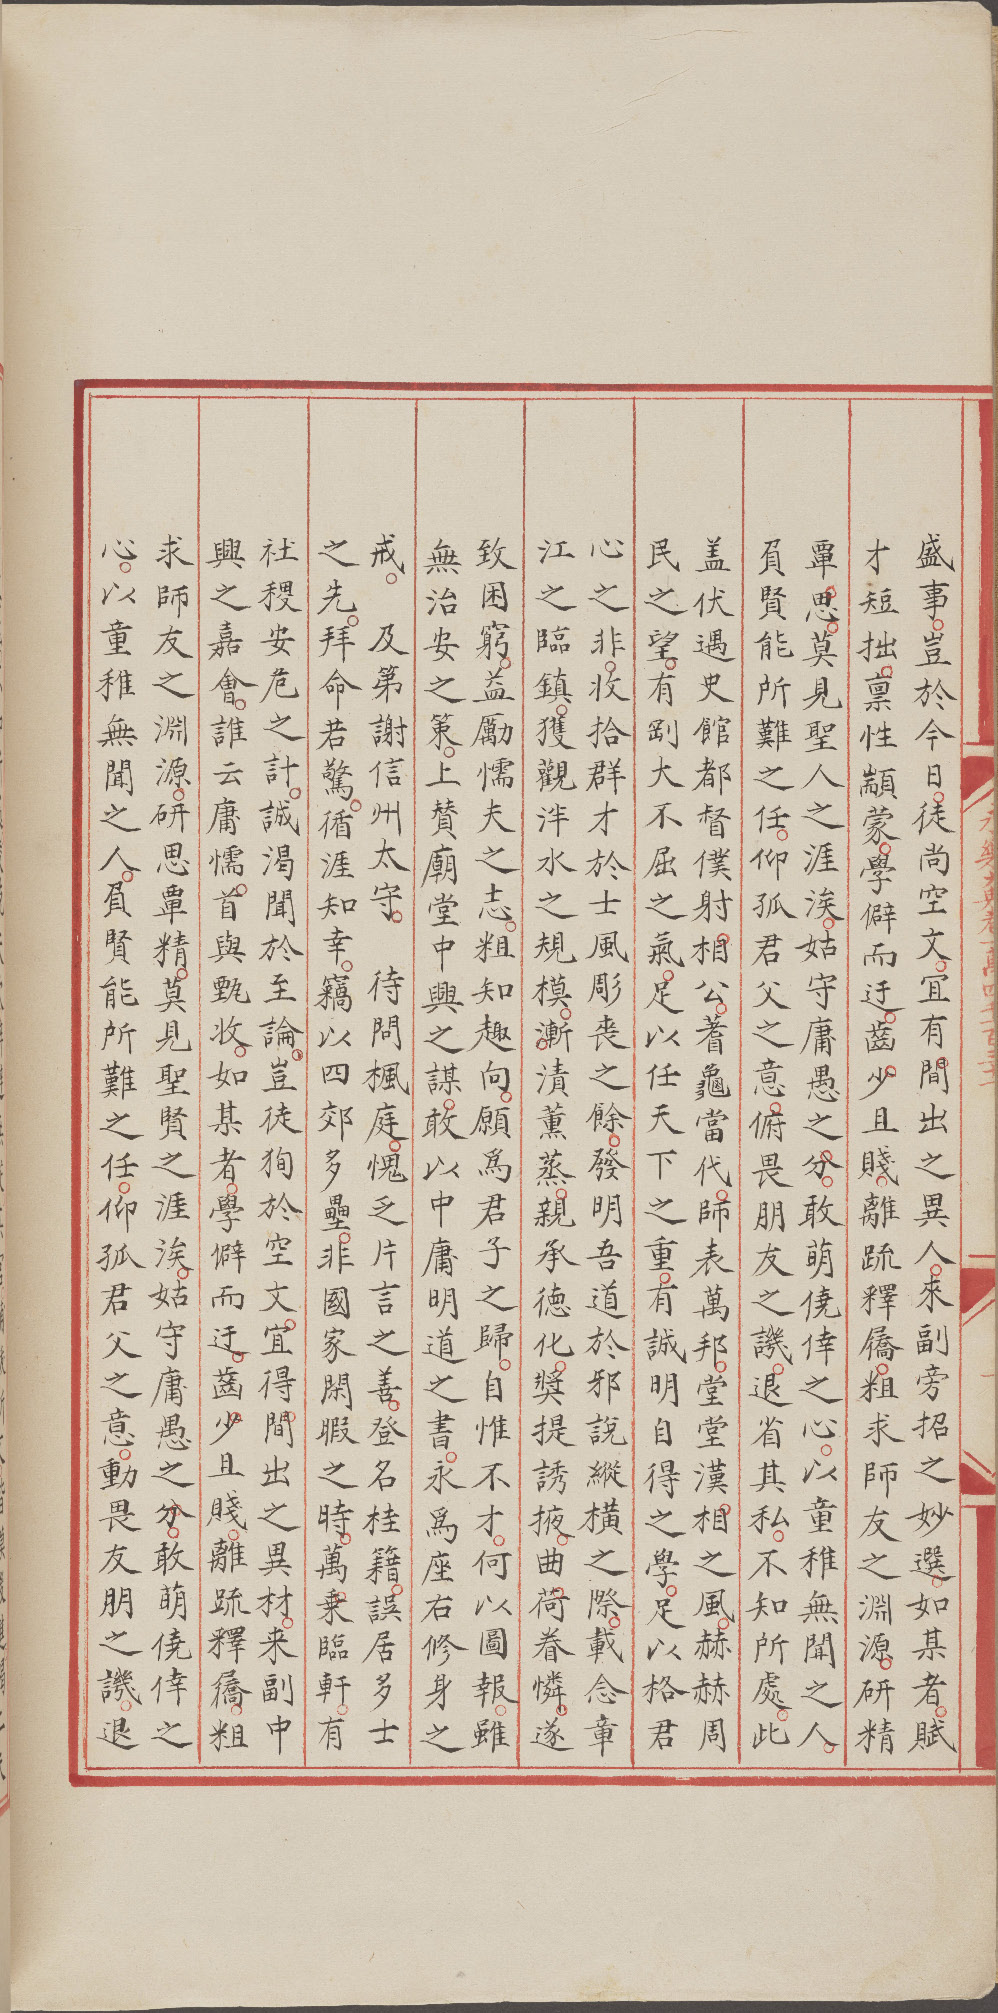 盛事豈於今日徒尚空文宜有間出之異人來副旁招之妙選如某者賦
才短拙禀性顓蒙學僻而迂齒少且賤離䟽釋僑粗求師友之淵源研精
覃思莫見聖人之涯涘姑守庸愚之分敢萌僥倖之心以童稚無聞之人
負賢能所難之任仰孤君父之意俯畏朋友之譏退省其私不知所處此
盖伏遇史館都督僕射相公蓍龜當代師表萬邦堂堂漢相之風赫赫周
民之望有剛大不屈之氣足以任天下之重有誠明自得之學足以格君
心之非收拾群才於士風彫喪之餘發明吾道於邪說縱橫之際載念章
江之臨鎮獲觀泮水之規模漸漬薰蒸親承德化奬提誘掖曲荷眷憐遂
致困窮益勵懦夫之志粗知趣向願爲君子之歸自惟不才何以圖報雖
無治安之策上賛廟堂中興之謀敢以中庸明道之書永爲座右修身之
戒 及第謝信州太守 待問楓庭愧乏片言之善登名桂籍誤居多士
之先拜命若驚循涯知幸竊以四郊多壘非國家閑暇之時萬乗臨軒有
社稷安危之計誠渇聞於至論豈徒狥於空文宜得間出之異材来副中
興之嘉會誰云庸懦首與甄收如某者學僻而迂齒少且賤離䟽釋僑粗
求師友之淵源研思覃精莫見聖賢之涯涘姑守庸愚之分敢萌僥倖之
心以童稚無聞之人負賢能所難之任仰孤君父之意動畏友朋之譏退